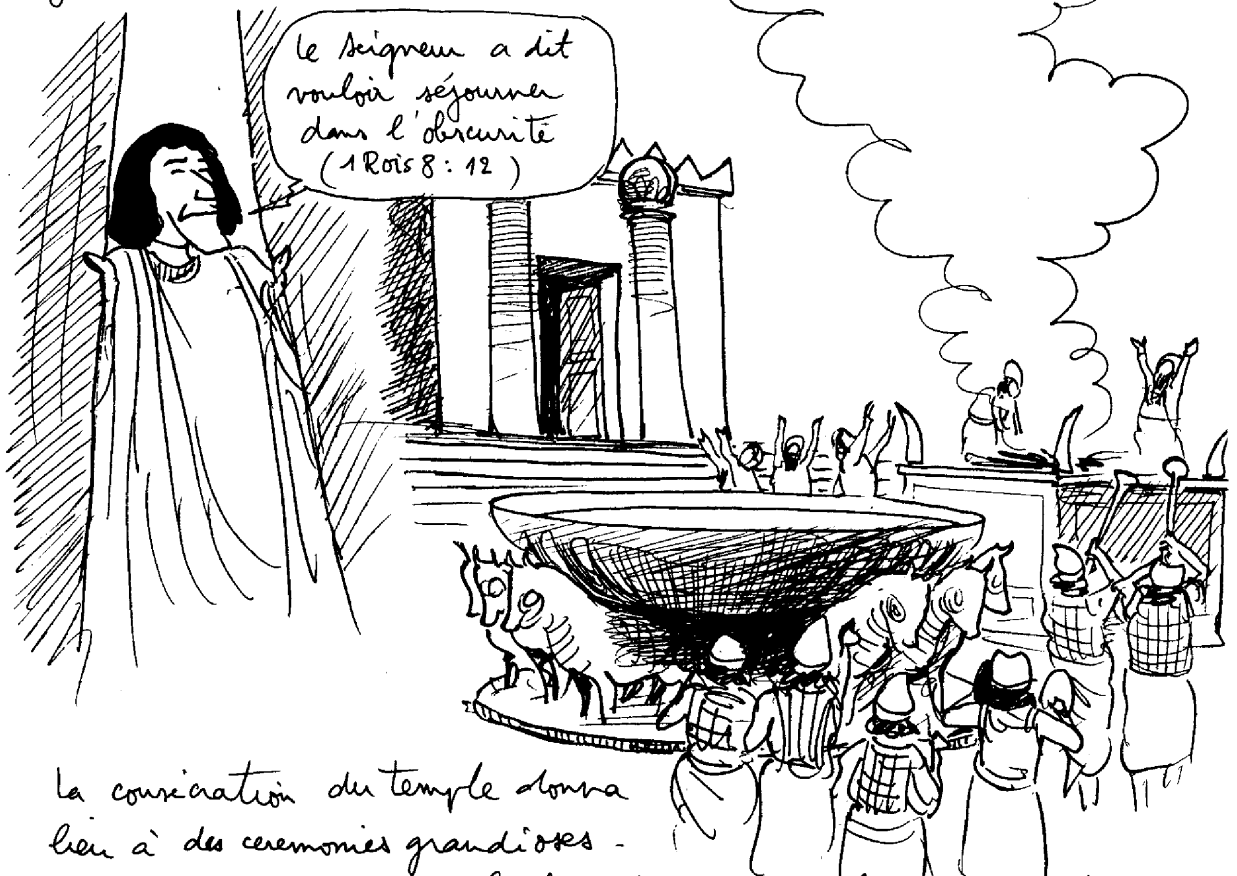 le seigneur a dit
vouloir séjourner
dans l'obscurité
(1 Rois 8 : 12 )
La consécration du temple donna
lieu à des ceremonies grandioses -